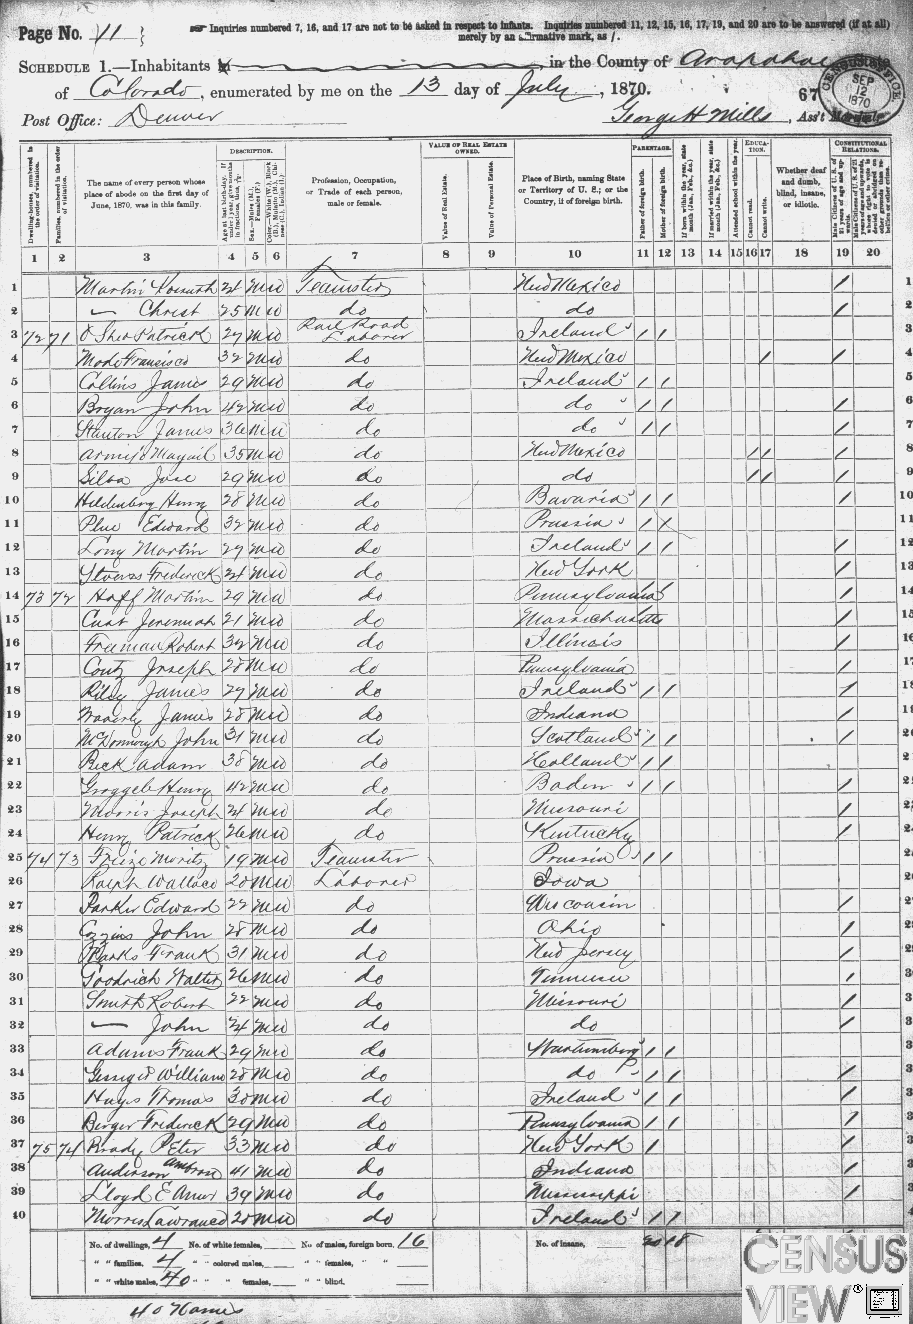 Page No. 11
☞ Inquiries numbered 7, 16, and 17 are not to be asked in respect to infants. Inquiries numbered 11, 12, 15, 16, 17, 19, and 20 are to be answered (if at all)
merely by an affirmative mark, as /.
SCHEDULE 1.—Inhabitants in the County of Arapahoe
of Colorado, enumerated by me on the 13 day of July, 1870. 67
CENSUS OFFICE. SEP 12 1870
Post Office: Denver George H Mills, Ass't Marshal
Dwelling-houses, numbered in the order of visitation.
Families, numbered in the order of visitation.
The name of every person whose place of abode on the first day of June, 1870, was in this family.
DESCRIPTION.
Age at last birth-day. If under one year, give months in fractions, thus, 3/12
Sex.—Males (M.), Females (F.)
Color.—White (W.), Black (B.), Mulatto (M.), Chinese (C.), Indian (I.)
Profession, Occupation, or Trade of each person, male or female.
VALUE OF REAL ESTATE OWNED.
Value of Real Estate.
Value of Personal Estate.
Place of Birth, naming State or Territory of U. S.; or the Country, if of foreign birth.
PARENTAGE.
Father of foreign birth.
Mother of foreign birth.
If born within the year, state month (Jan., Feb., &c.)
If married within the year, state month (Jan., Feb., &c.)
Attended school within the year.
EDUCATION.
Cannot read.
Cannot write.
Whether deaf and dumb, blind, insane, or idiotic.
CONSTITUTIONAL RELATIONS.
Male Citizens of U. S. of 21 years of age and upwards.
1 2 3 4 5 6 7 8 9 10 11 12 13 14 15 16 17 18 19 20
1 Martin 24 M W Teamster New Mexico / 1
2 — Christ 25 M W do do / 2
3 72 71 O Shea Patrick 27 M W Rail Road Laborer Ireland / / / 3
4 Francisco 32 M W do New Mexico / / 4
5 Collins James 29 M W do Ireland / / / 5
6 Bryan John 42 M W do do / / / 6
7 Stanton James 36 M W do do / / / 7
8 Armijo 35 M W do New Mexico / / / 8
9 Silba Jose 29 M W do do / / / 9
10 Henry 28 M W do Bavaria / / / 10
11 Plue Edward 32 M W do Prussia / / 11
12 Long Martin 27 M W do Ireland / / / 12
13 Stevens Frederick 24 M W do New York / 13
14 73 72 Hoff Martin 29 M W do Pennsylvania / 14
15 Jeremiah 21 M W do Massachusetts / 15
16 Freeman Robert 32 M W do Illinois / 16
17 Coutz Joseph 28 M W do Pennsylvania / 17
18 Riley James 27 M W do Ireland / / / 18
19 Waverly James 28 M W do Indiana / 19
20 McDonnough John 31 M W do Scotland / / / 20
21 Beck Adam 38 M W do Holland / / 21
22 Henry 42 M W do Baden / / / 22
23 Morris Joseph 24 M W do Missouri / 23
24 Henry Patrick 26 M W do Kentucky / 24
25 74 73 Frieze Moritz 19 M W Teamster Prussia / / 25
26 Ralph Wallace 20 M W Laborer Iowa 26
27 Parker Edward 22 M W do Wisconsin / 27
28 Cozzins John 28 M W do Ohio / 28
29 Marks Frank 31 M W do New Jersey / 29
30 Goodrich Walter 26 M W do Tennessee / 30
31 Smith Robert 22 M W do Missouri / 31
32 — John 24 M W do do / 32
33 Adams Frank 29 M W do Wurtemberg / /
34 William 28 M W do do / / /
35 Hays Thomas 30 M W do Ireland / / /
36 Berger Frederick 29 M W do Pennsylvania / / /
37 75 74 Brady Peter 33 M W do New York / /
38 Anderson Ambrose 41 M W do Indiana /
39 Lloyd Elmer 39 M W do Mississippi /
40 Morris Lawrance 20 M W do Ireland / /
No. of dwellings, 4 No. of white females, No. of males, foreign born, 16 No. of insane, 18
" " families, 4 " " colored males, " " females, " "
" " white males, 40 " " " females, " " blind.
40 Names
CENSUS
VIEW®